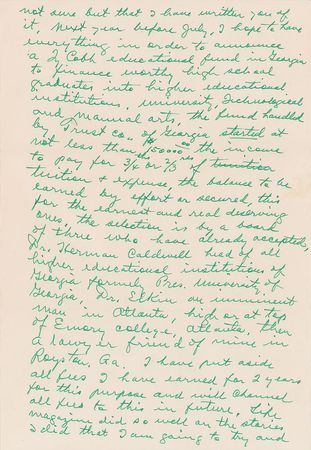 not sure but that I have written you of
it, next year before July, I hope to have
everything in order to announce
a Ty Cobb educational fund in Georgia
to finance worthy high school
graduates into higher educational
institutions, university, Technological
and manual arts, the fund handled
by Trust Co., of Georgia started at
not less than $50000.00 the income
to pay for 3/4 or 2/3rs of tunition
tuition & expense, the balance to be
earned by effort or secured, this
for the earnest and real deserving
ones, the selection is by a board
of three who have already accepted,
Dr. Herman Caldwell head of all
higher educational institutions of
Georgia formely Pres. University of
Georgia, Dr. Elkin an imminent
man in Atlanta, high or at top
of Emory college, Atlanta, then
a lawyer friend of mine in
Royston, Ga. I have put aside
all fees I have earned for 2 years
for this purpose and will channel
all fees to this in future, Life
magazine did so well on the stories
I did that I am going to try and